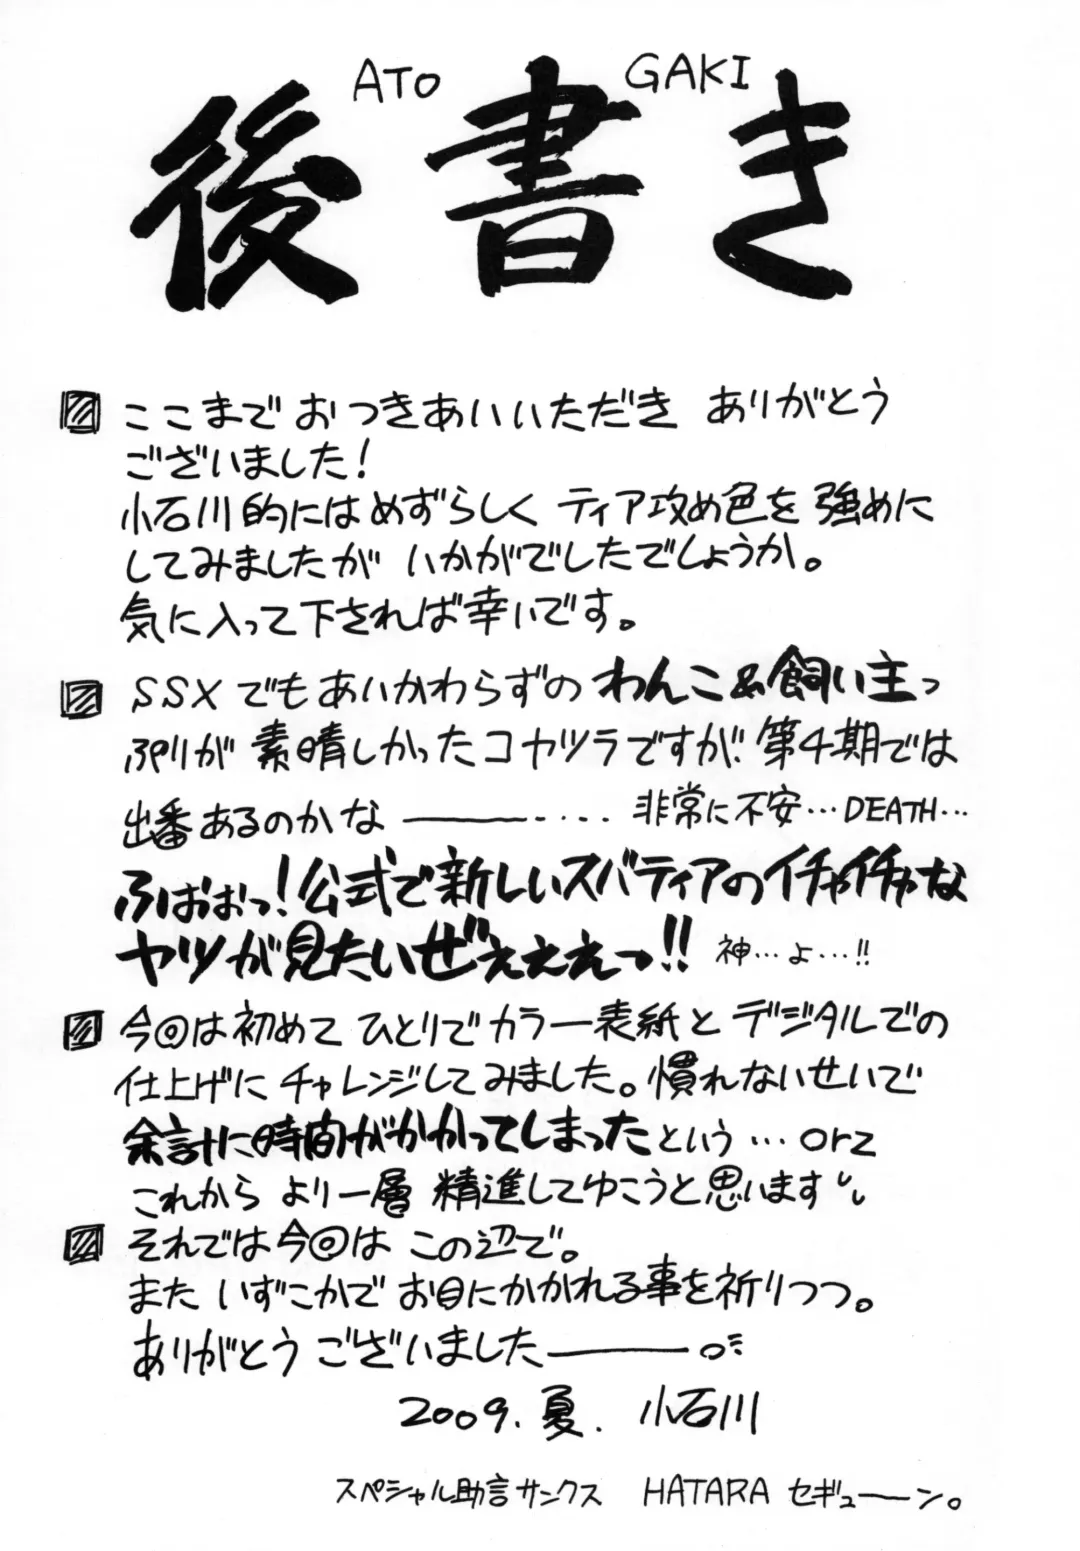 ATO GAKI
後書き
ここまでおつきあいいただき ありがとう
ございました!
小石川的にはめずらしく ティア攻め色を強めに
してみましたが いかがでしたでしょうか。
気に入って下されば幸いです。
SSXでもあいかわらずのわんこ&飼い主っ
ぷりが 素晴しかったコヤツラですが 第4期では
出番あるのかな ――――・・・・ 非常に不安…DEATH…
ふおおおっ!公式で新しいスパティアのイチャイチャな
ヤツが見たいぜぇぇぇーっ!! 神…よ…!!
今回は初めて ひとりでカラー表紙とデジタルでの
仕上げにチャレンジしてみました。慣れないせいで
余計に時間がかかってしまったという…orz
これから より一層 精進してゆこうと思います
それでは今回は この辺で。
また いずこかで お目にかかれる事を祈りつつ。
ありがとう ございました――――。
2009.夏. 小石川
スペシャル助言サンクス HATARA セギューーン。